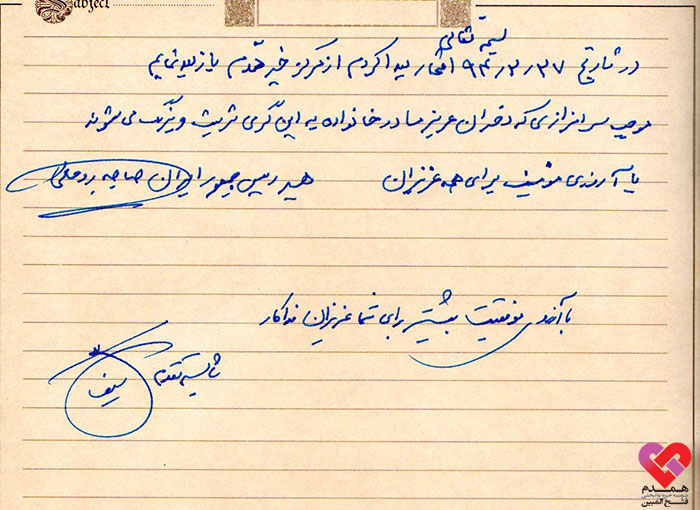 Subject
بسمه تعالی
در تاریخ ۹۴,۲,۲۷ افتخار پیدا کردم از مرکز خیر همدم بازدید نمایم
موجب سرافرازی که دختران عزیز ما در خانواده به این گرمی تربیت و بزرگ می شوند
با آرزوی موفقیت برای همه عزیزان همسر رییس جمهور ایران صاحبه روحانی
با آرزوی موفقیت بیشتر برای شما عزیزان فداکار
سیف
همدم
موسسه خیریه توانبخشی
فتح المبین